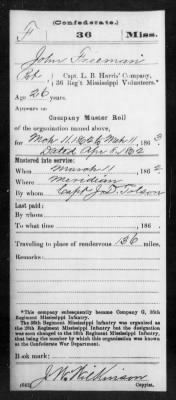 (Confederate.)
F 36 Miss.
John Freeman
Pvt, Capt. L. B. Harris' Company,
36 Reg't Mississippi Volunteers.*
Age 26 years.
Appears on
Company Muster Roll
of the organization named above,
for Mch 11, 1862 to Mch 11, 1863
Dated Apr 8, 1862
Mustered into service:
When March 11, 1862
Where Meridian
By whom Capt J. D. Tolson
Last paid:
By whom
To what time , 186 .
Traveling to place of rendezvous 136 miles.
Remarks:
*This company subsequently became Company G, 36th
Regiment Mississippi Infantry.
The 36th Regiment Mississippi Infantry was organized as
the 26th Regiment Mississippi Infantry but the designation
was soon changed to the 36th Regiment Mississippi Infantry,
that being the number by which this organization was known
at the Confederate War Department.
Book mark:
J. W. Wilkinson
(642) Copyist.